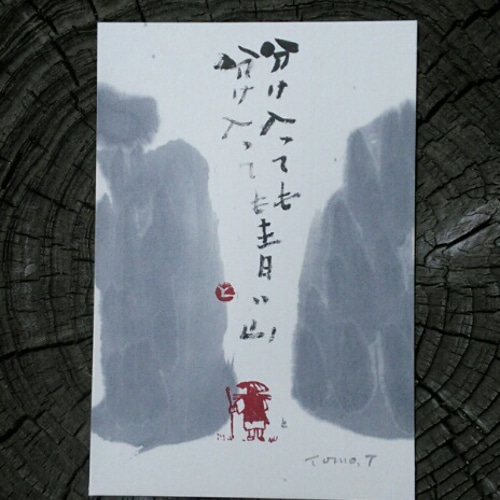 分け入っても
分け入っても
青い山
と
と
Tomo.T